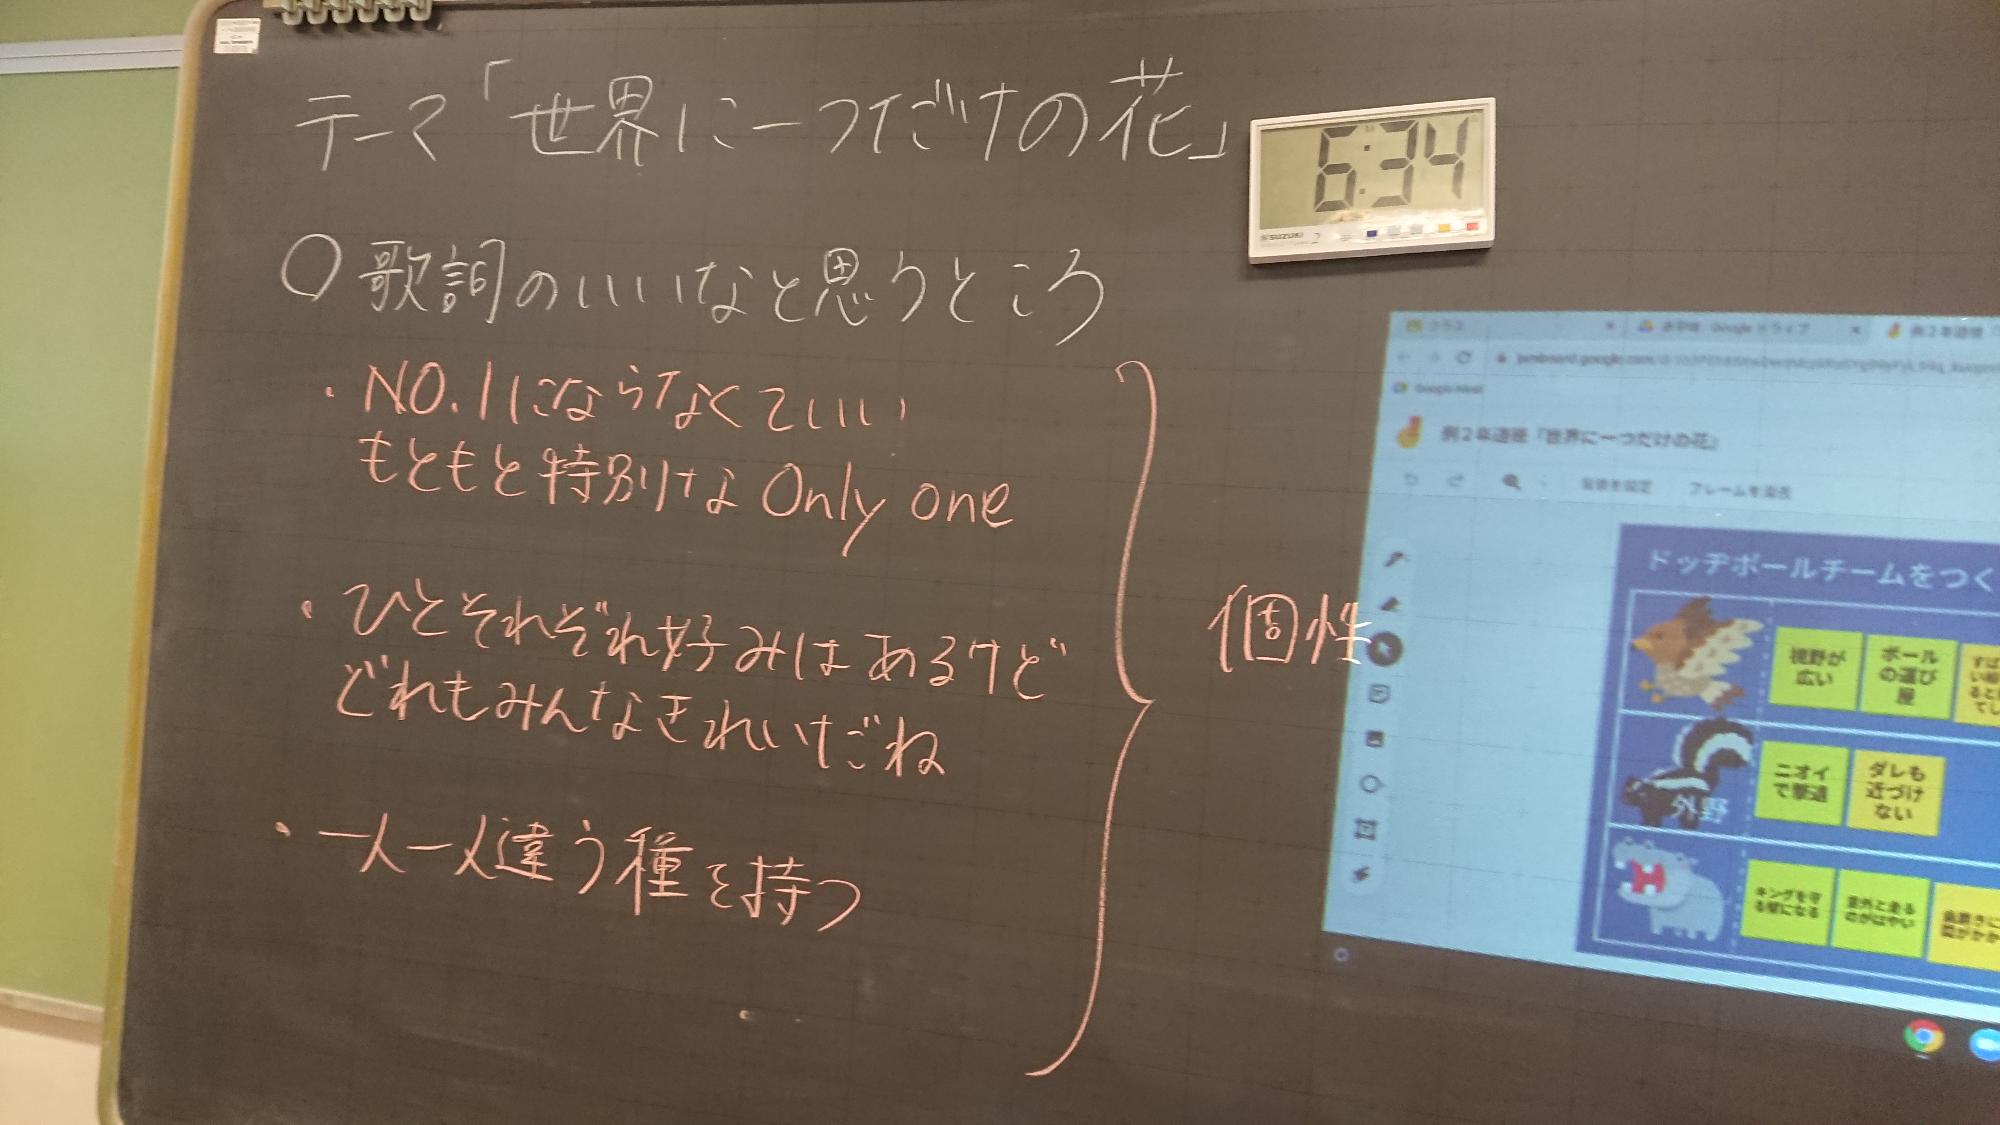 テーマ「世界に一つだけの花」
6:34
SUZUKI
○歌詞のいいなと思うところ
・NO.1にならなくていい
もともと特別な Only one
・ひとそれぞれ好みはあるけど
どれもみんなきれいだね
・一人一人違う種を持つ
個性
クラス
Google ドライブ
jamboard.google.com
Google Meet
2年道徳『世界に一つだけの花』
背景を設定
フレームを消去
ドッヂボールチームをつく
視野が
広い
ボール
の運び
屋
ニオイ
で撃退
ダレも
近づけ
ない
外野
キングを守
る壁になる
意外と走る
のがはやい